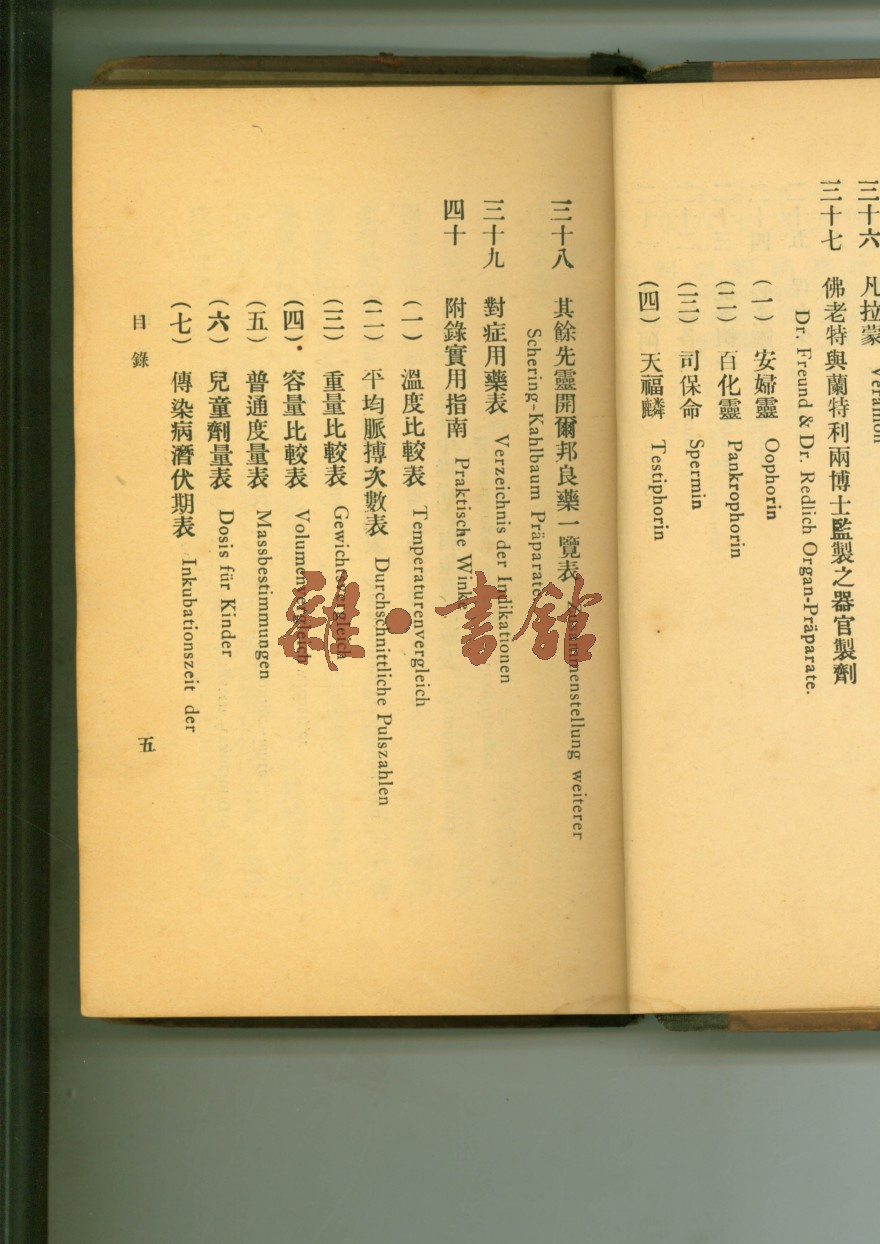 三十六 凡拉蒙 Veramon
三十七 佛老特與蘭特利兩博士監製之器官製劑
Dr. Freund & Dr. Redlich Organ-Präparate.
(一) 安婦靈 Oophorin
(二) 百化靈 Pankrophorin
(三) 司保命 Spermin
(四) 天福麟 Testiphorin
三十八 其餘先靈開爾邦良藥一覽表 Zusammenstellung weiterer
Schering-Kahlbaum Präparate
三十九 對症用藥表 Verzeichnis der Indikationen
四十 附錄實用指南 Praktische Winke
(一) 溫度比較表 Temperaturenvergleich
(二) 平均脈搏次數表 Durchschnittliche Pulszahlen
(三) 重量比較表 Gewichtsvergleich
(四) 容量比較表 Volumenvergleich
(五) 普通度量表 Massbestimmungen
(六) 兒童劑量表 Dosis für Kinder
(七) 傳染病潛伏期表 Inkubationszeit der
目錄
五
雜·書館